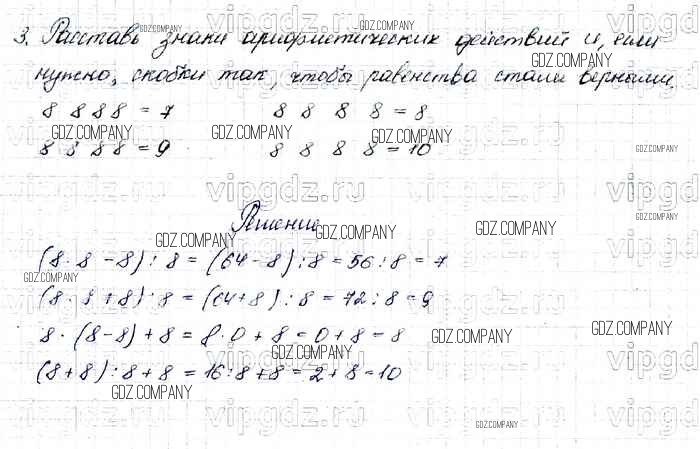 3. Расставь знаки арифметических действий и, если
нужно, скобки так, чтобы равенства стали верными.
8 8 8 8 = 7    8 8 8 8 = 8
8 8 8 8 = 9    8 8 8 8 = 10
Решение
(8 · 8 - 8) : 8 = (64 - 8) : 8 = 56 : 8 = 7
(8 · 8 + 8) : 8 = (64 + 8) : 8 = 72 : 8 = 9
8 · (8 - 8) + 8 = 8 · 0 + 8 = 0 + 8 = 8
(8 + 8) : 8 + 8 = 16 : 8 + 8 = 2 + 8 = 10
GDZ.COMPANY
vipgdz.ru